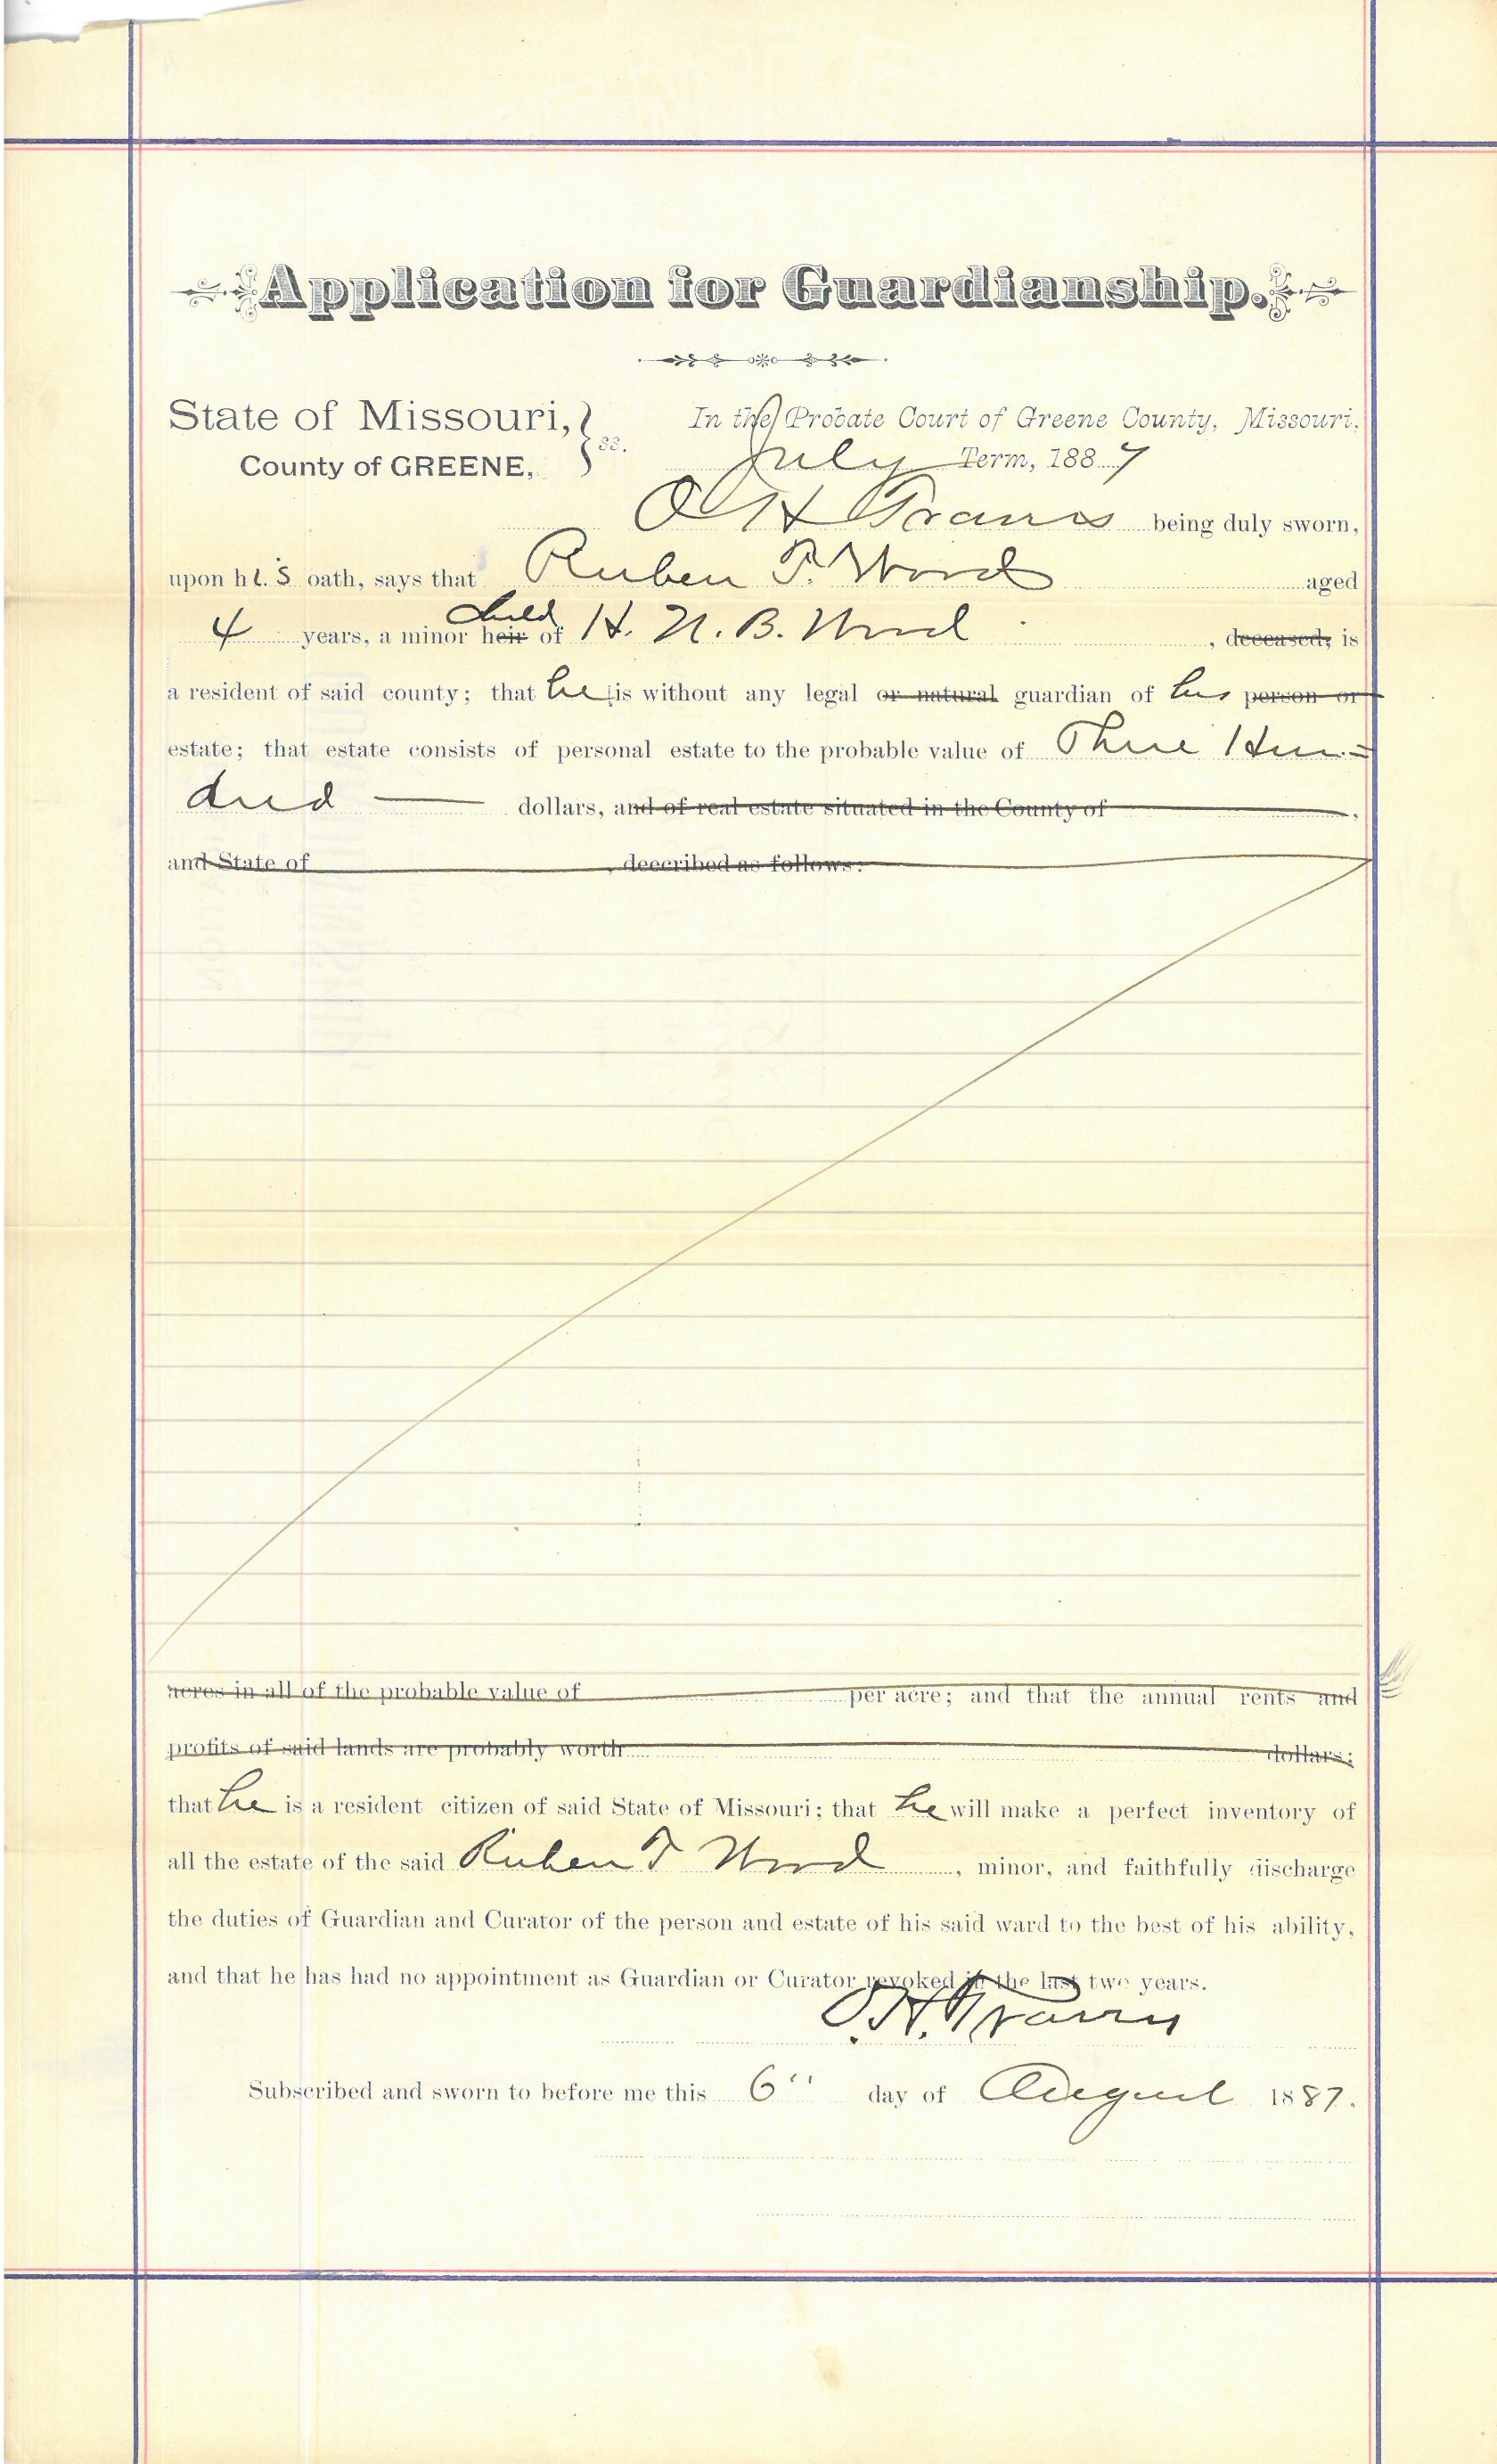 Application for Guardianship.
State of Missouri, } ss. In the Probate Court of Greene County, Missouri,
County of GREENE, July Term, 1887
O H Travis being duly sworn,
upon his oath, says that Ruben T. Wood aged
child
4 years, a minor heir of H. N. B. Wood , deceased, is
a resident of said county; that he is without any legal or natural guardian of his person or
estate; that estate consists of personal estate to the probable value of Three Hun=
dred — dollars, and of real estate situated in the County of ,
and State of , deecribed as follows:
acres in all of the probable value of per acre; and that the annual rents and
profits of said lands are probably worth dollars;
that he is a resident citizen of said State of Missouri; that he will make a perfect inventory of
all the estate of the said Ruben T Wood , minor, and faithfully discharge
the duties of Guardian and Curator of the person and estate of his said ward to the best of his ability,
and that he has had no appointment as Guardian or Curator revoked in the last two years.
O. H. Travis
Subscribed and sworn to before me this 6" day of August 1887.